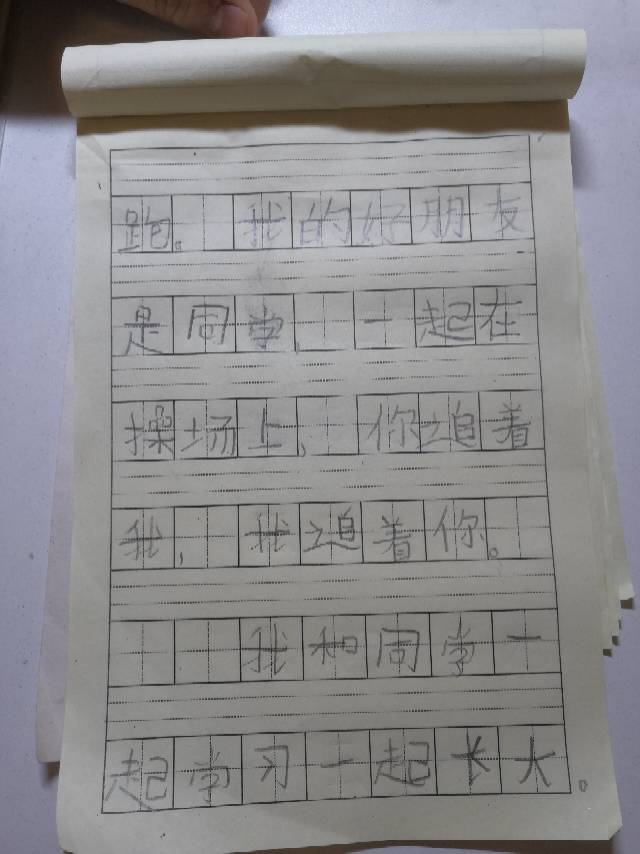 跑。我的好朋友
是同学,一起在
操场上,你追着
我,我追着你。
我和同学一
起学习一起长大。